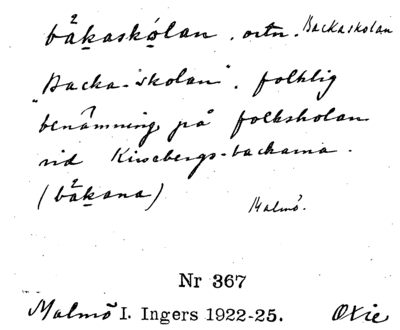 båkaskólan, ortn. Backaskolan
"Backa-skolan", folklig
benämning på folkskolan
vid Kirsebergs-backarna.
(båkana)
Malmö.
Nr 367
Malmö I. Ingers 1922-25. Oxie